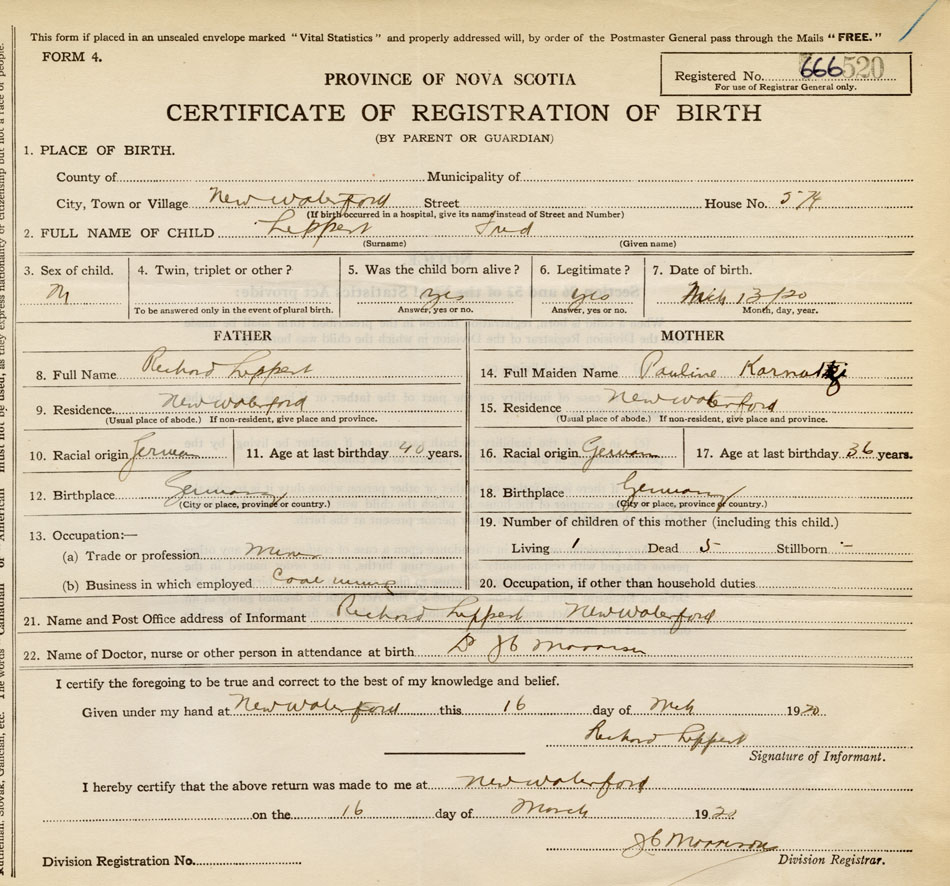 This form if placed in an unsealed envelope marked "Vital Statistics" and properly addressed will, by order of the Postmaster General pass through the Mails "FREE."
FORM 4.
PROVINCE OF NOVA SCOTIA
Registered No. 666520
For use of Registrar General only.
CERTIFICATE OF REGISTRATION OF BIRTH
(BY PARENT OR GUARDIAN)
1. PLACE OF BIRTH.
County of Municipality of
City, Town or Village New Waterford Street House No. 574
(If birth occurred in a hospital, give its name instead of Street and Number)
2. FULL NAME OF CHILD Leppert Fred
(Surname) (Given name)
3. Sex of child. 4. Twin, triplet or other? 5. Was the child born alive? 6. Legitimate? 7. Date of birth.
M yes yes Mch 13/20
To be answered only in the event of plural birth. Answer, yes or no. Answer, yes or no. Month, day, year.
FATHER MOTHER
8. Full Name Richard Leppert 14. Full Maiden Name Pauline
9. Residence New Waterford 15. Residence New Waterford
(Usual place of abode.) If non-resident, give place and province. (Usual place of abode.) If non-resident, give place and province.
10. Racial origin German 11. Age at last birthday 40 years. 16. Racial origin German 17. Age at last birthday 36 years.
12. Birthplace Germany 18. Birthplace Germany
(City or place, province or country.) (City or place, province or country.)
19. Number of children of this mother (including this child.)
13. Occupation:—
(a) Trade or profession Miner Living 1 Dead 5 Stillborn -
(b) Business in which employed Coal mining 20. Occupation, if other than household duties
21. Name and Post Office address of Informant Richard Leppert New Waterford
22. Name of Doctor, nurse or other person in attendance at birth Dr JC Morrison
I certify the foregoing to be true and correct to the best of my knowledge and belief.
Given under my hand at New Waterford this 16 day of Mch 1920
Richard Leppert
Signature of Informant.
I hereby certify that the above return was made to me at New Waterford
on the 16 day of March 1920
JC Morrison
Division Registration No. Division Registrar.